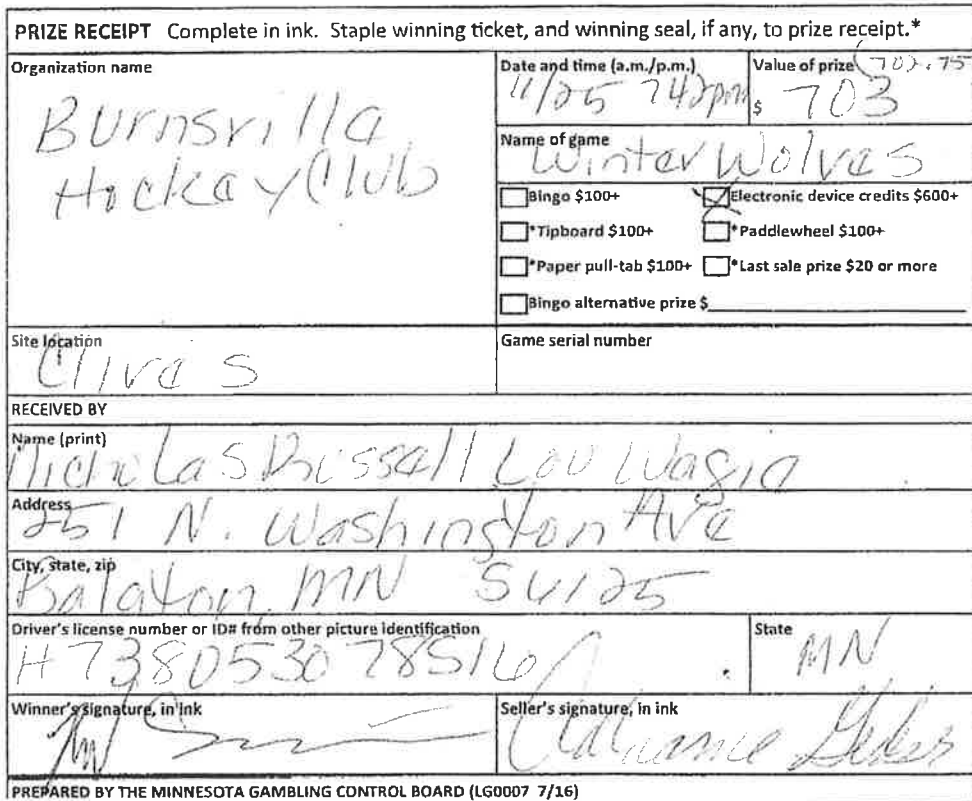 PRIZE RECEIPT Complete in ink. Staple winning ticket, and winning seal, if any, to prize receipt.*
Organization name
Burnsvilla
Hockey Club
Date and time (a.m./p.m.)
11/25 742pm
Value of prize (702.75
$ 703
Name of game
Winter Wolves
Bingo $100+
Electronic device credits $600+
*Tipboard $100+
*Paddlewheel $100+
*Paper pull-tab $100+
*Last sale prize $20 or more
Bingo alternative prize $
Site location
Clives
Game serial number
RECEIVED BY
Name (print)
Nicholas Bissell Lou
Address
251 N. Washington Ave
City, state, zip
Balaton, MN
Driver's license number or ID# from other picture identification
H738053078516
State
MN
Winner's signature, in ink
Seller's signature, in ink
PREPARED BY THE MINNESOTA GAMBLING CONTROL BOARD (LG0007 7/16)